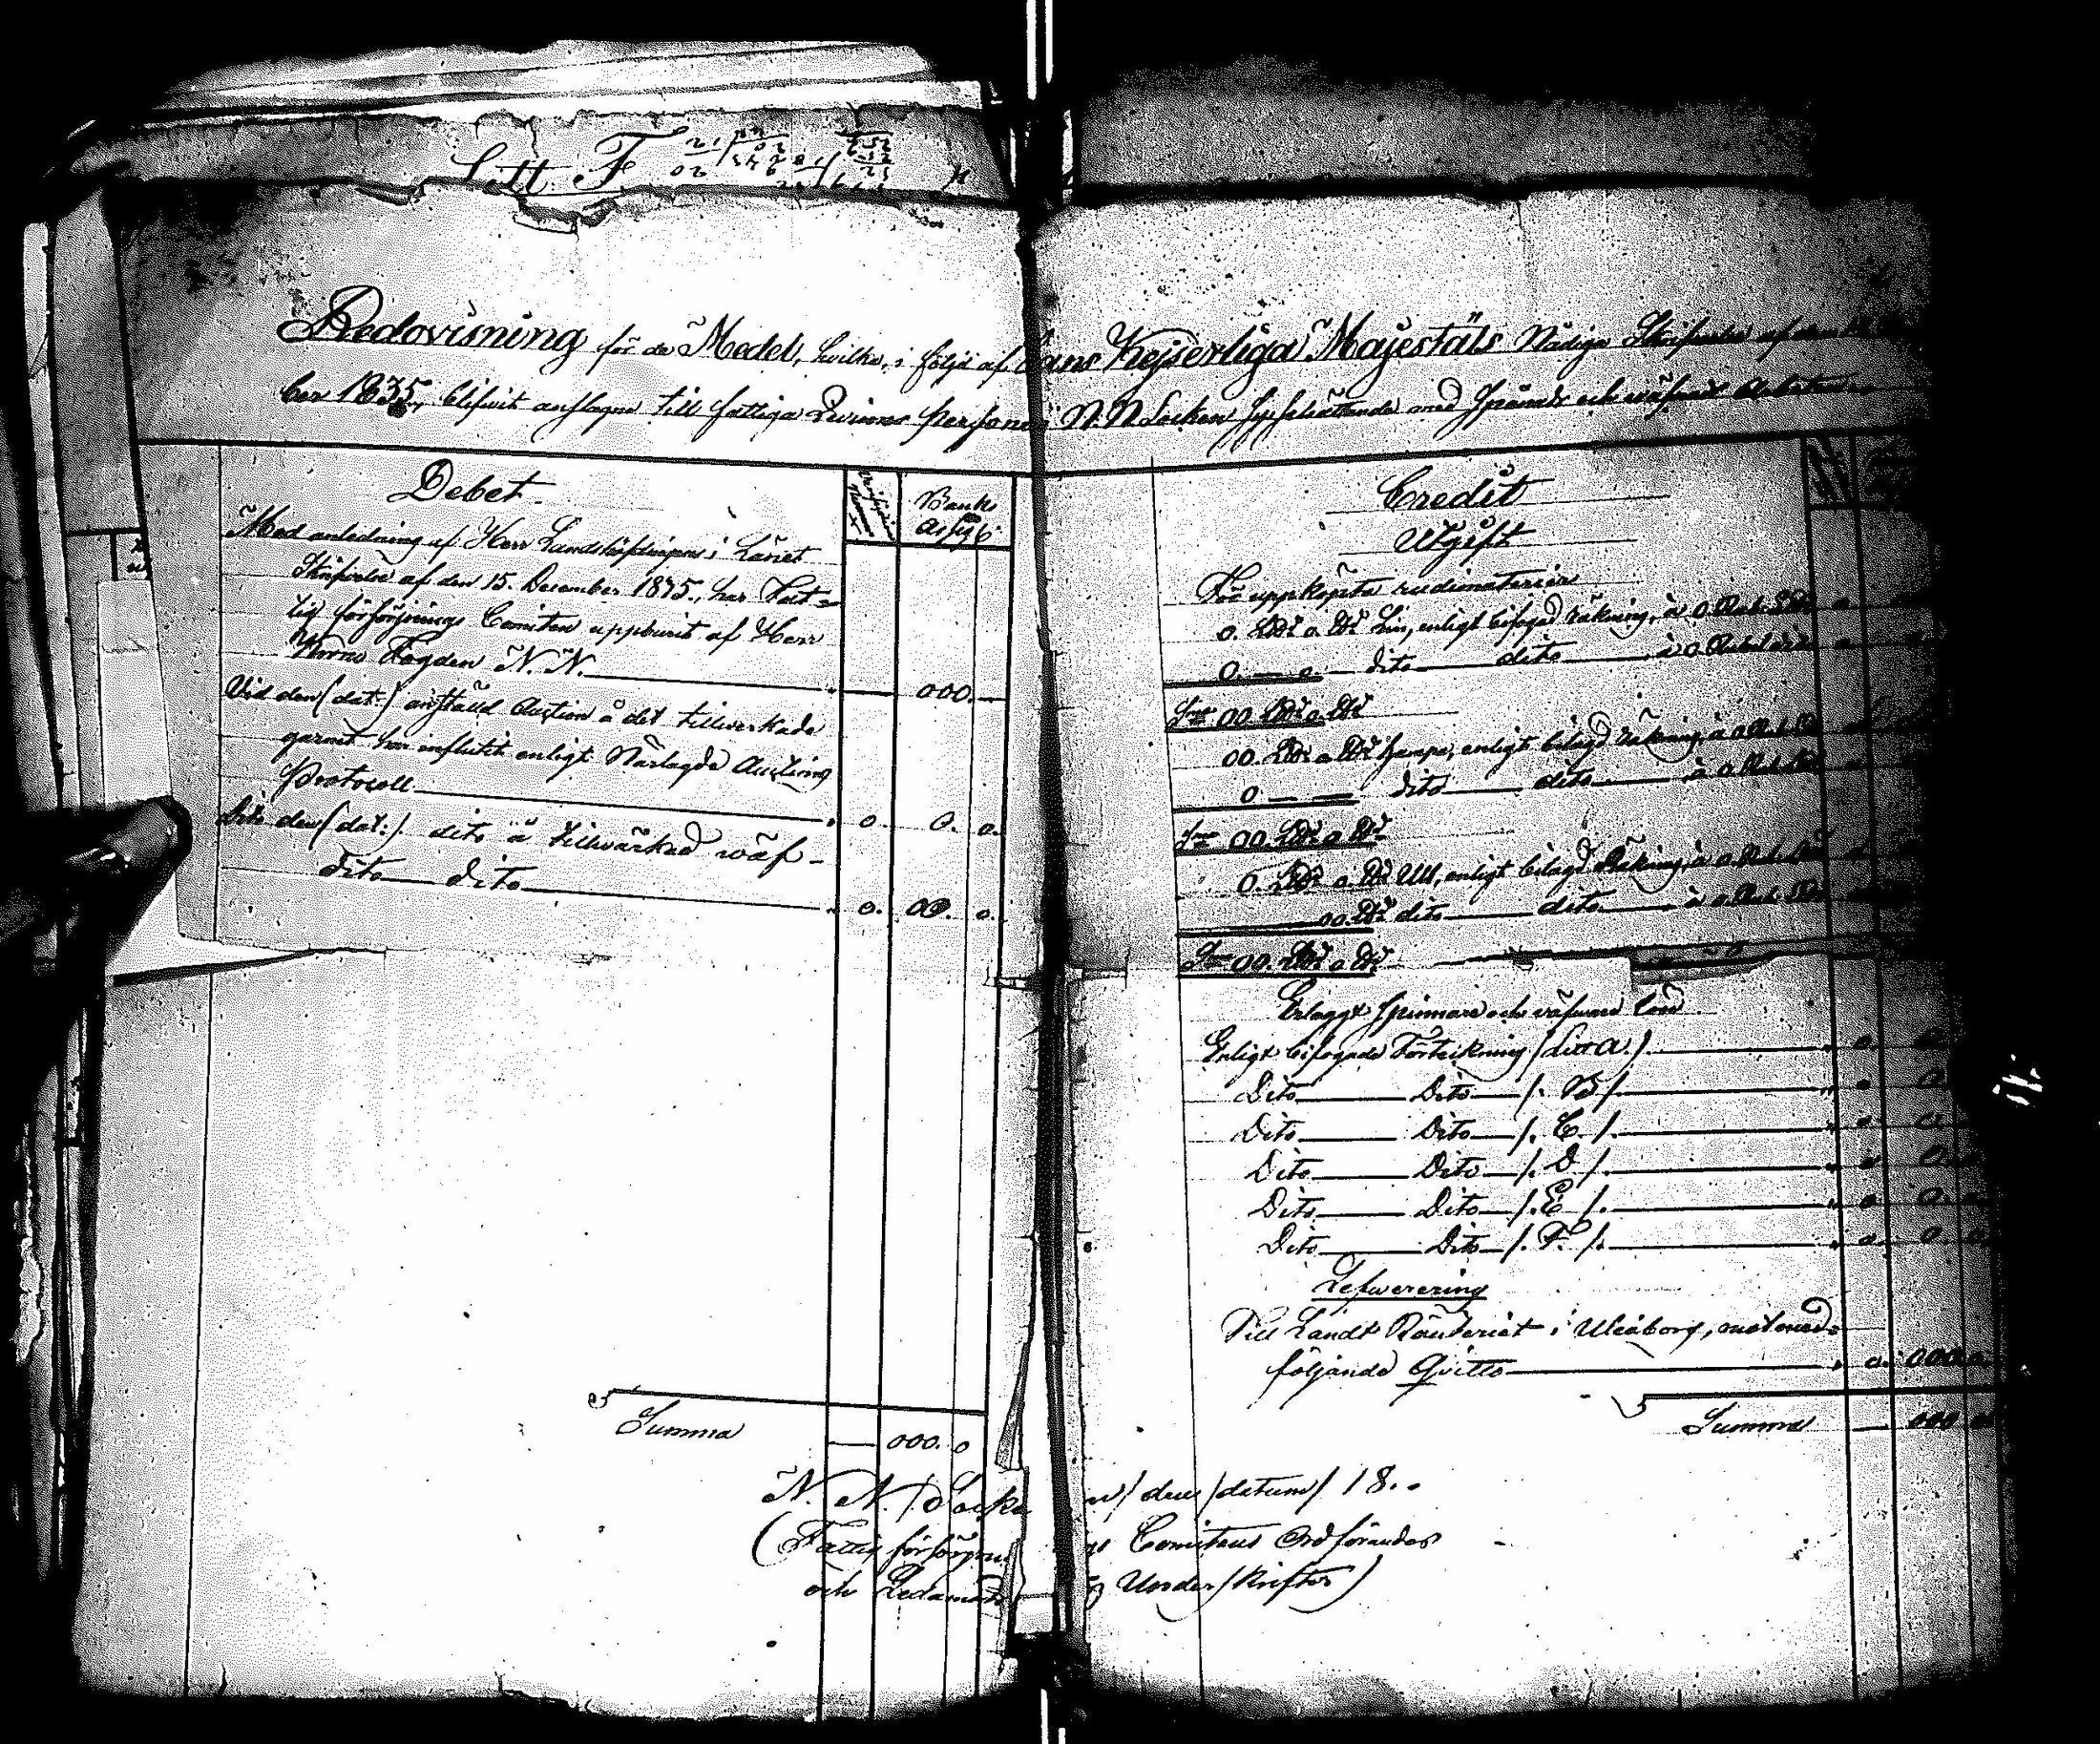 Litt. F
Redovisning för de Medel, hvilka, i följd af Hans Kejserliga Majestäts Nådiga Skrifvelse af den
ber 1835, blifvit anslagna till fattiga Qvinns Personers i N. N. Socken sysselsättande med Spånads och väfnads Arbeten
Debet
Banko
Assig:
Med anledning af Herr Landshöfdingens i Länet
Skrifvelse af den 15. December 1835, har Fat-
tig försörjnings Comiten uppburit af Herr
Krono Fogden N. N. 000. —
Vid den (dat:) anstäld Auction å det tillverkade
garnet har influtit enligt Närlagde Auctions
Protocoll 0. 0. 0.
Dito den (dat:) dito å tillvärkad väf-
dito dito 0. 00. 0.
Summa — 000. 0
Credit
Utgift
För uppköpta rudimaterier
0. LW a. W Lin, enligt bifogad räkning, à 0 Rub. LW
0. — 0. — dito dito à 0 Rubel
Sma 00 LW 0 W
00. LW 0 W hampa, enligt bilagd räkning, à 0 Rub.
0 — — dito dito à 0 Rub.
Sma 00. LW 0 W
0. LW 0. W Ull, enligt bilagd Räkning, à 0. Rub.
00. W dito dito à 0 Rub.
Sma 00. LW 0 W
Erlaggt Spinnare och väfvare lön
Enligt bifogade Förteckning (Litt a.) 0. 0.
Dito Dito /. B /. 0 0.
Dito Dito /. C /. 0 0.
Dito Dito /. D /. 0 0.
Dito Dito /. E /. 0 0.
Dito Dito /. F. /. 0 0
Lefverering
Till Landt Ränteriet i Uleåborg, mot med-
följande Qvitto 0. 000.
Summa — 000
N. N. /Socken/ den /datum/ 18..
(Fattig försörjnings Comiteens Ordförandes
och Ledamöters Underskrifter)